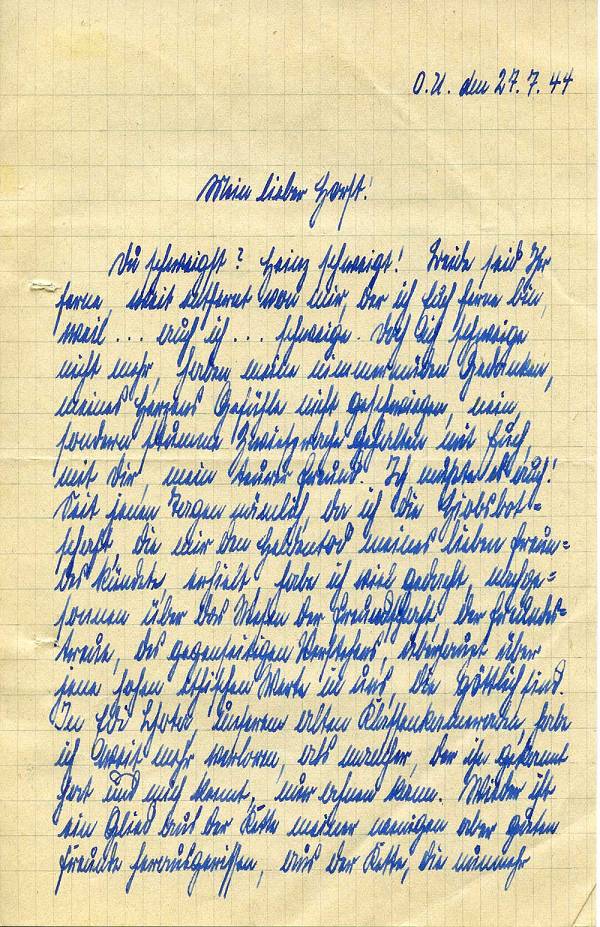 O.U. den 27.7.44
Mein lieber Horst!
Du schweigst? Heinz schweigt! Beide seid Ihr
ferne, weit entfernt von mir, der ich Euch ferne bin,
weil ... auch ich ... schweige. Doch ich schweige
nicht mehr, haben meine nimmermüden Gedanken,
meines Herzens Gefühle nicht geschwiegen, nein,
sondern stumme Zwiesprache gehalten mit Euch,
mit Dir, mein teurer Freund. Ich mußte es auch!
Seit jenen Tagen nämlich, da ich die Hjobsbot=
schaft, die mir den Heldentod meines lieben Freun=
des kündete, erhielt, habe ich viel gedacht, nachge=
sonnen über das Wesen der Freundschaft, der Freundes=
treue, des gegenseitigen Verstehens, überhaupt über
jene hohen ethischen Werte in uns, die göttlich sind.
In Edi, unserem alten Klassenkameraden, habe
ich weit mehr verloren, als mancher, der ihn gekannt
hat und mich kennt, nur ahnen kann. Wieder ist
ein Glied aus der Kette meiner wenigen aber guten
Freunde herausgerissen, aus der Kette, die nunmehr